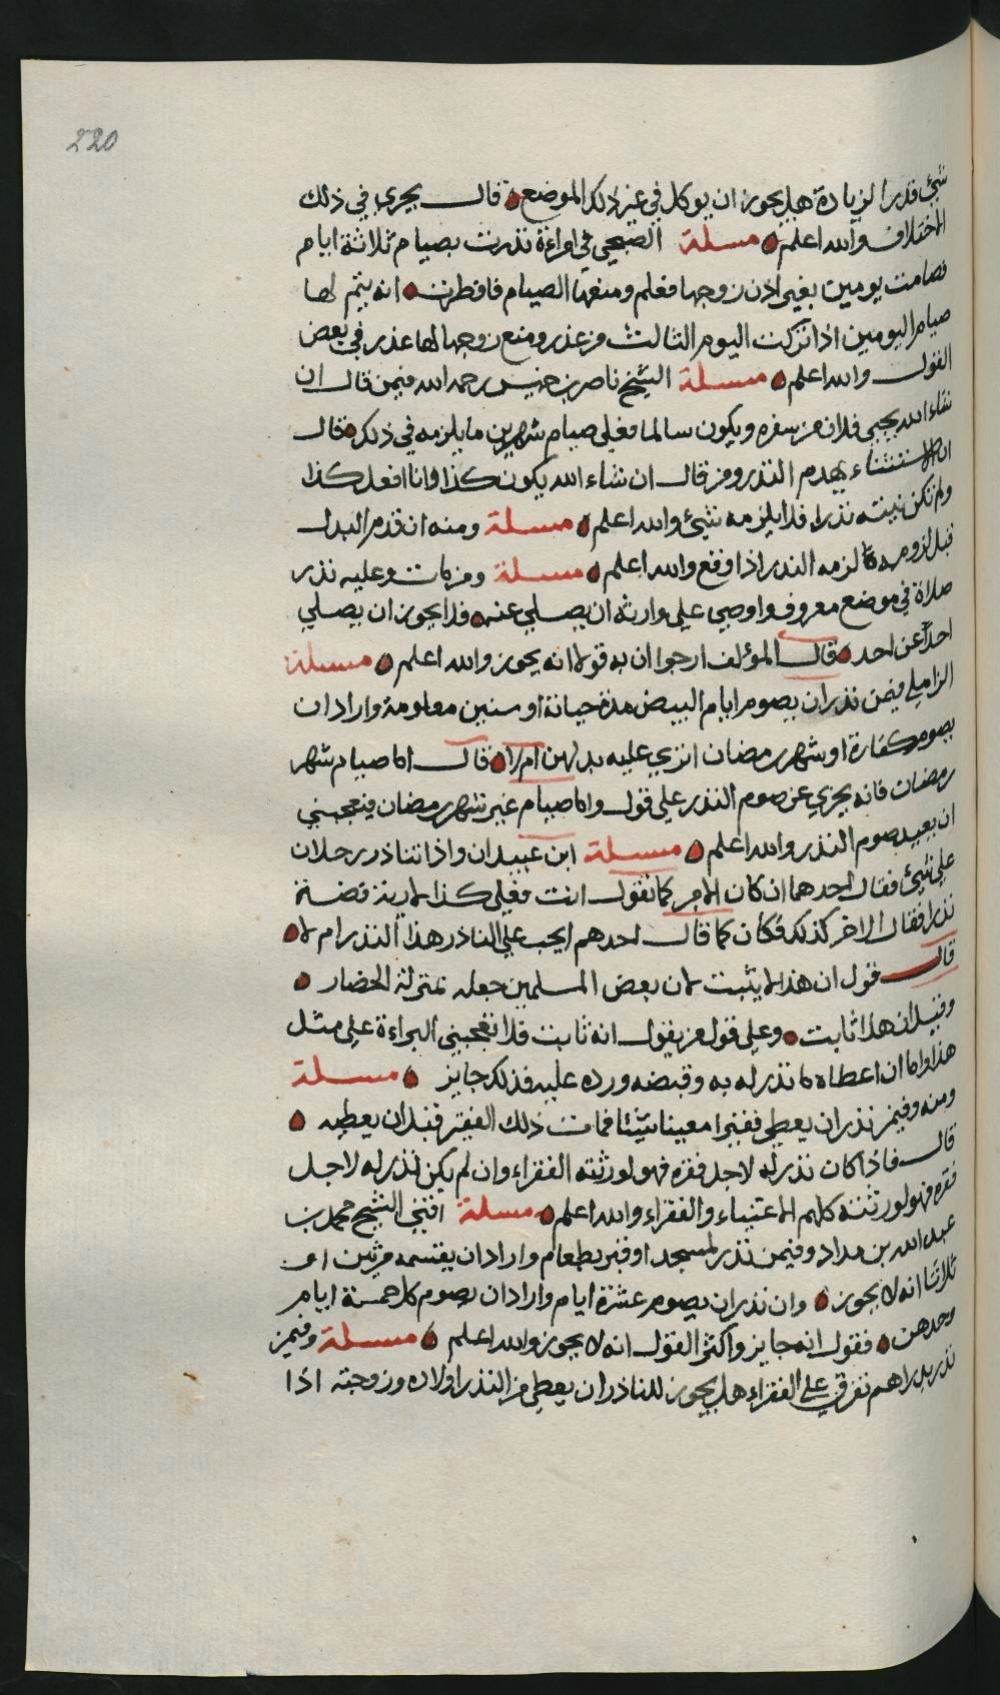 220
شيء قدر الزيادة هل يجوز ان يوكل في غير ذلك الموضع قال يجري في ذلك
الاختلاف والله اعلم مسلة الصبحي في امراءة نذرت بصيام ثلاثة ايام
فصامت يومين بغير اذن زوجها فعلم ومنعها الصيام فافطرت انه يتم لها
صيام اليومين اذا تركت اليوم الثالث من عذر ومنع زوجها لها عذر في بعض
القول والله اعلم مسلة الشيخ ناصر بن خميس رحمه الله فيمن قال ان
شاء الله يجيى فلان من سفره ويكون سالما فعلي صيام شهرين ما يلزمه في ذلك قال
ان الاستثناء يهدم النذر ومن قال ان شاء الله يكون كذا وانا افعل كذا
ولم تكن نيته نذرا فلا يلزمه شيء والله اعلم مسلة ومنه ان قدم البدل
قبل لزومه لزمه النذر اذا وقع والله اعلم مسلة ومن مات وعليه نذر
صلاة في موضع معروف واوصى على وارثه ان يصلي عنه فلا يجوز ان يصلي
احد عن احد قال المؤلف ارجوا ان به قولا انه يجوز والله اعلم مسلة
الزاملي فيمن نذر ان يصوم ايام البيض مدة حياته او سنين معلومة واراد ان
يصوم كفارة او شهر رمضان اترى عليه بدلهن ام لا قال اما صيام شهر
رمضان فانه يجزي عن صوم النذر على قول واما صيام غير شهر رمضان فيعجبني
ان يعيد صوم النذر والله اعلم مسلة ابن عبيدان واذا تناذر رجلان
على شيء فقال احدهما ان كان الامر كما تقول انت فعلي كذا لارية فضة
نذرا فقال الاخر كذلك فكان كما قال احدهم ايجب على الناذر هذا النذر ام لا
قال فقول ان هذا لا يثبت لان بعض المسلمين جعله بمنزلة الخضار
وقيل ان هذا ثابت وعلى قول من يقول انه ثابت فلا تعجبني البراءة على مثل
هذا واما ان اعطاه ما نذر له به وقبضه ورده عليه فذلك جايز مسلة
ومنه وفيمن نذر ان يعطي فقيرا معينا شيئا فمات ذلك الفقير قبل ان يعطيه
قال فاذا كان نذر له لاجل فقره فهو لورثته الفقراء وان لم يكن نذر له لاجل
فقره فهو لورثته كلهم الاغنياء والفقراء والله اعلم مسلة افتى الشيخ محمد بن
عبد الله بن مداد وفيمن نذر لمسجد او قبر بطعام واراد ان يقسمه مرتين او
ثلاثا انه لا يجوز وان نذر ان يصوم عشرة ايام واراد ان يصوم كل خمسة ايام
وحدهن فقول انه جايز واكثر القول انه لا يجوز والله اعلم مسلة وفيمن
نذر بدراهم تفرق على الفقراء هل يجوز للناذر ان يعطي من النذر اولاده وزوجته اذا